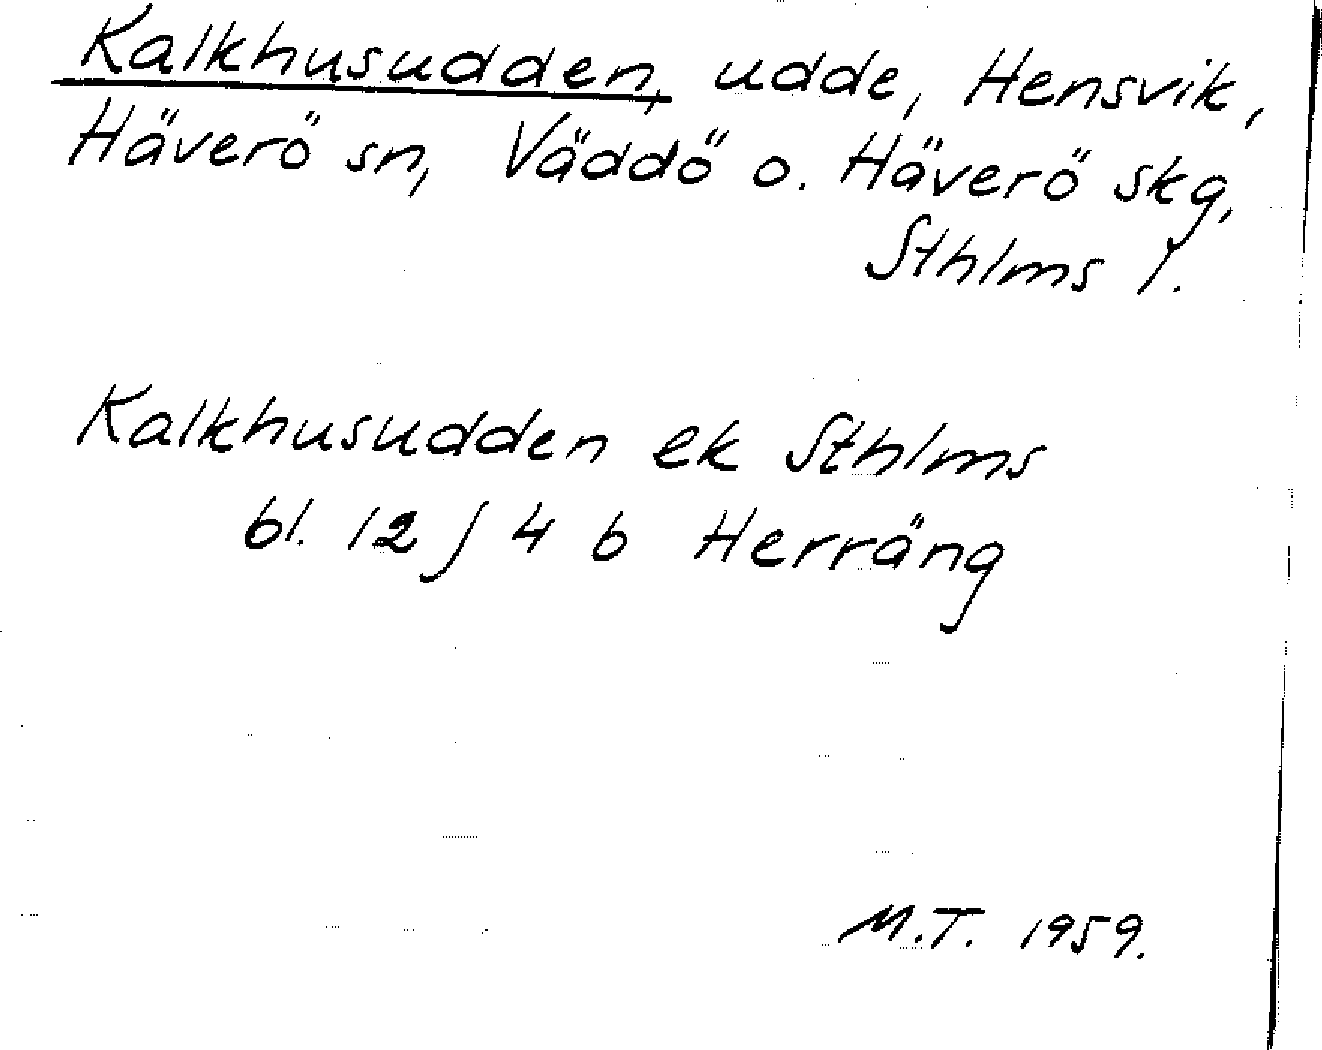 Kalkhusudden, udde, Hensvik,
Häverö sn, Väddö o. Häverö skg,
Sthlms l.
Kalkhusudden ek Sthlms
bl. 12 J 4 b Herräng
M.T. 1959.